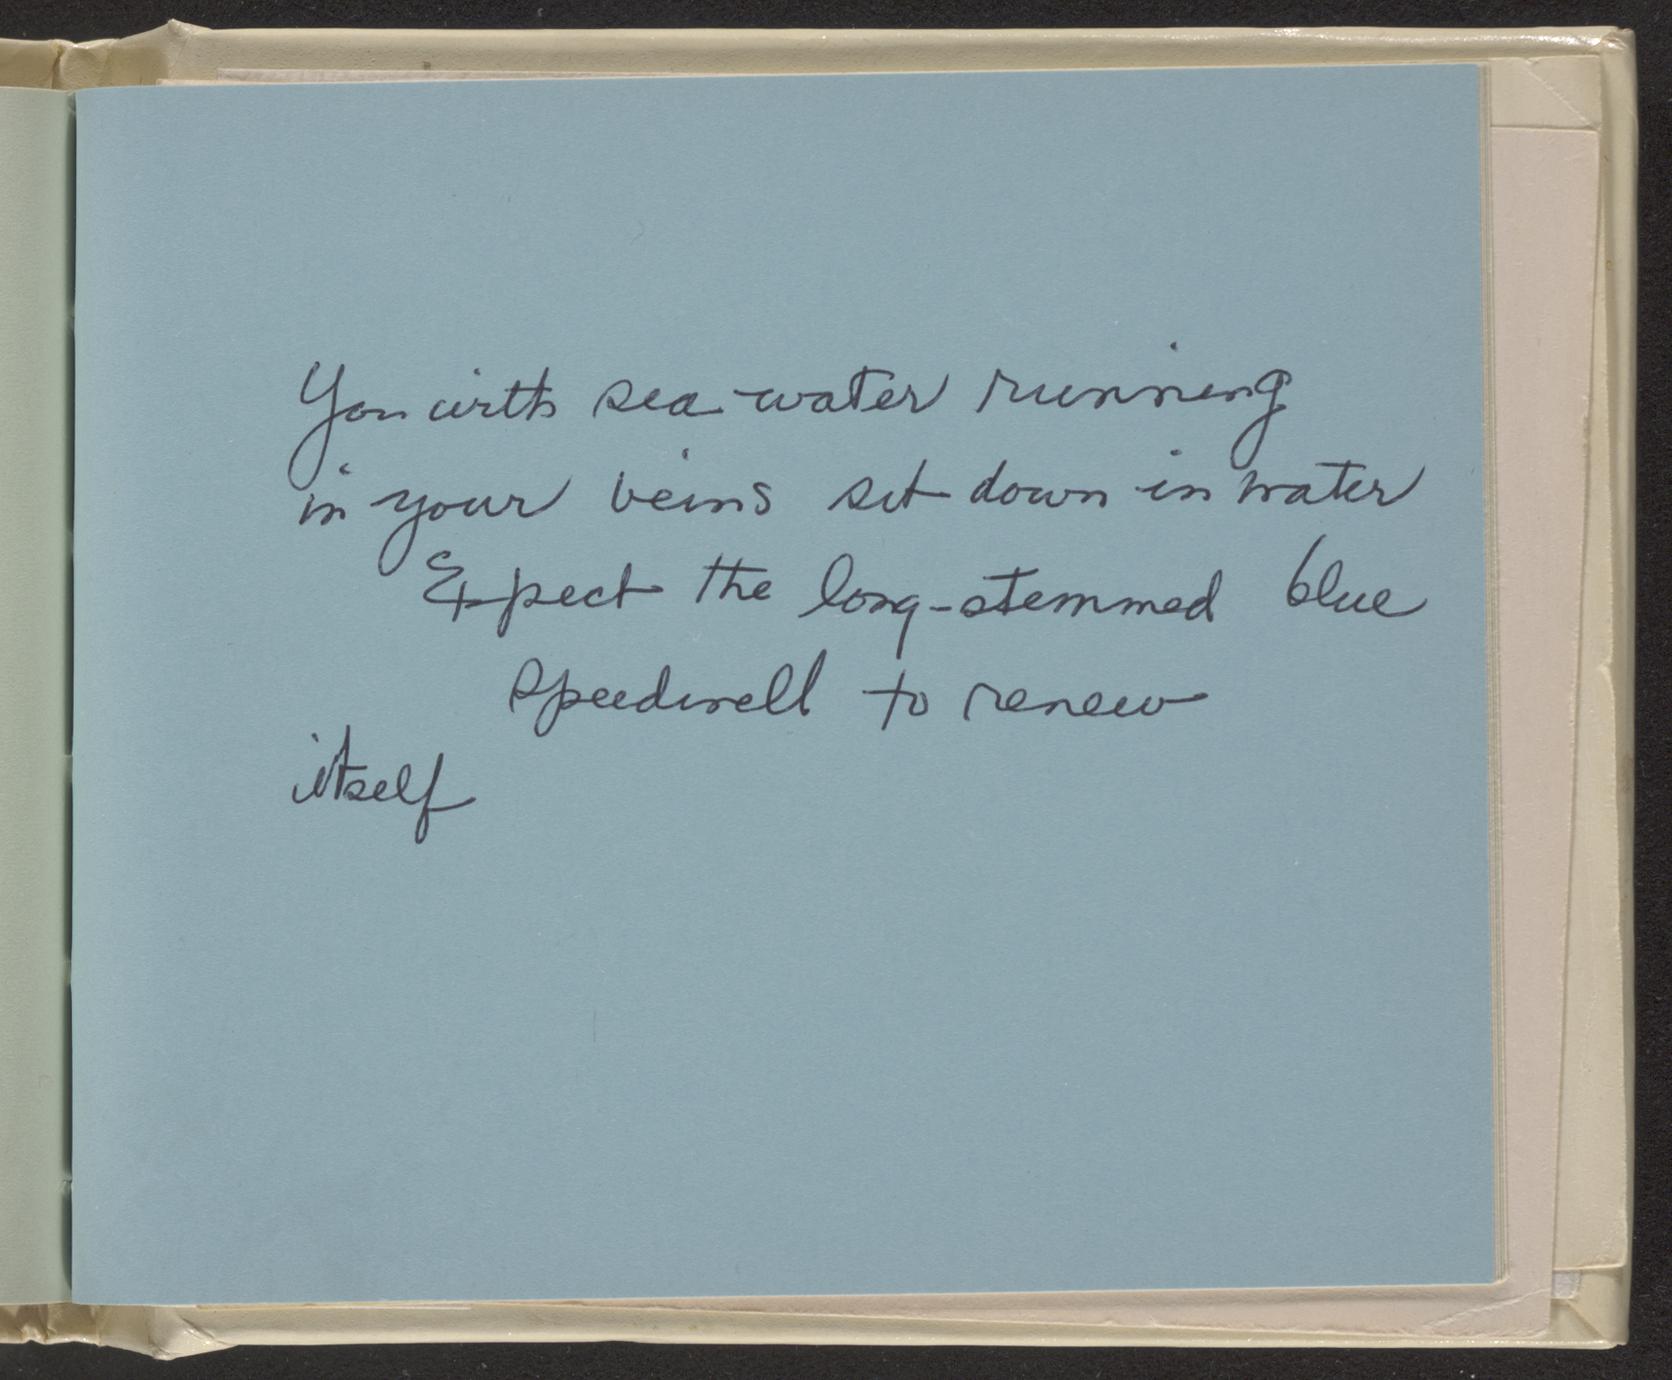 You with sea water running
in your veins sit down in water
Expect the long-stemmed blue
speedwell to renew
itself